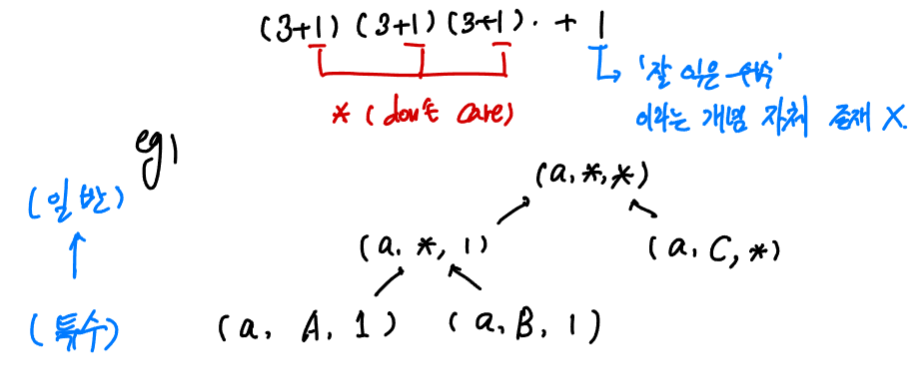 (3+1) (3+1) (3+1). + 1
* (don't care)
'잘 익은 수박'
이라는 개념 자체 존재 X.
eg)
(일반)
(a, *, *)
(a, *, 1)
(a, C, *)
(특수)
(a, A, 1)
(a, B, 1)